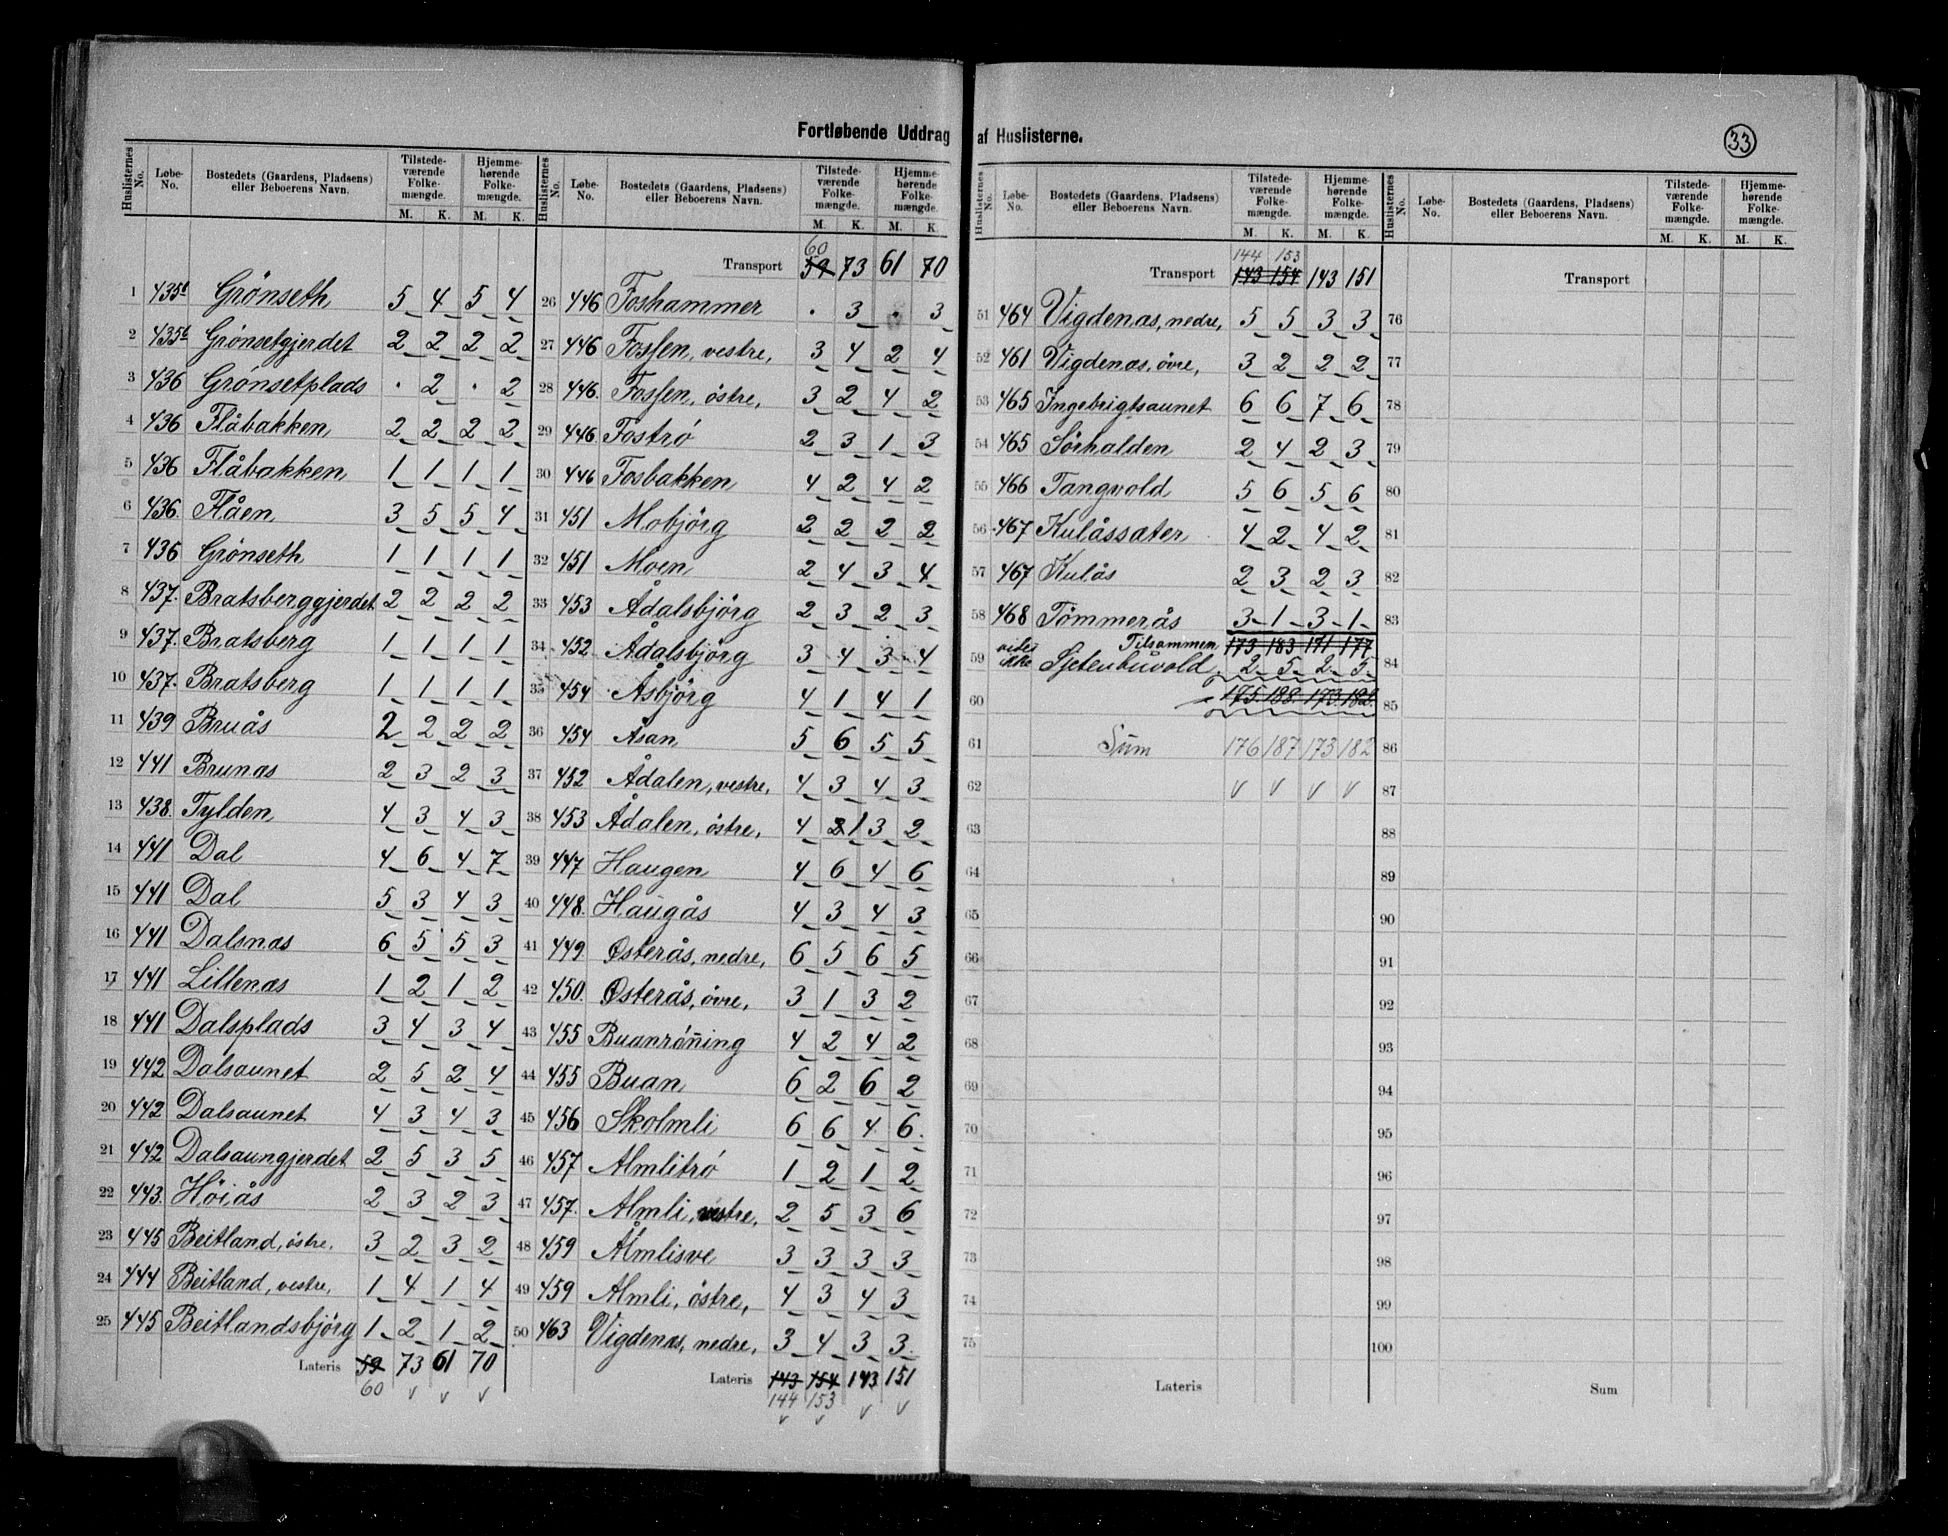 Fortløbende Uddrag af Huslisterne.
33
Huslisternes No. Løbe-No. Bostedets (Gaardens, Pladsens) eller Beboerens Navn. Tilstedeværende Folkemængde. M. K. Hjemmehørende Folkemængde. M. K.
1 435b Grønseth 5 4 5 4
2 435b Grönsetgjerdet 2 2 2 2
3 436 Grönsetplads . 2 . 2
4 436 Flåbakken 2 2 2 2
5 436 Flåbakken 1 1 1 1
6 436. Flåen 3 5 5 4
7 436 Grönseth 1 1 1 1
8 437. Bratsberggjerdet 2 2 2 2
9 437. Bratsberg 1 1 1 1
10 437. Bratsberg 1 1 1 1
11 439 Bruås 2 2 2 2
12 441 Brunæs 2 3 2 3
13 438. Tylden 4 3 4 3
14 441 Dal 4 6 4 7
15 441 Dal 5 3 4 3
16 441 Dalsnæs 6 5 5 3
17 441 Lillenæs 1 2 1 2
18 441 Dalsplads 3 4 3 4
19 442 Dalsaunet 2 5 2 4
20 442 Dalsaunet 4 3 4 3
21 442 Dalsaungjerdet 2 5 3 5
22 443. Höiås 2 3 2 3
23 445 Beitland, östre, 3 2 3 2
24 444 Beitland, vestre, 1 4 1 4
25 445 Beitlandsbjörg 1 2 1 2
Lateris 59 73 61 70
60 v v v
Huslisternes No. Løbe-No. Bostedets (Gaardens, Pladsens) eller Beboerens Navn. Tilstedeværende Folkemængde. M. K. Hjemmehørende Folkemængde. M. K.
60
Transport 59 73 61 70
26 446 Foshammer . 3 . 3
27 446 Fossen, vestre, 3 4 2 4
28 446. Fossen, östre, 3 2 4 2
29 446 Foströ 2 3 1 3
30 446 Fosbakken 4 2 4 2
31 451 Mobjörg 2 2 2 2
32 451 Moen 2 4 3 4
33 453 Ådalsbjörg 2 3 2 3
34 452 Ådalsbjörg 3 4 3 4
35 454 Åsbjörg 4 1 4 1
36 454 Åsan 5 6 5 5
37 452 Ådalen, vestre, 4 3 4 3
38 453 Ådalen, östre, 4 2 1 3 2
39 447 Haugen 4 6 4 6
40 448. Haugås 4 3 4 3
41 449 Østerås, nedre, 6 5 6 5
42 450. Østerås, övre, 3 1 3 2
43 455 Buanröning 4 2 4 2
44 455 Buan 6 2 6 2
45 456 Skolmli 6 6 4 6.
46 457 Almlitrö 1 2 1 2
47 457. Almli, vestre, 2 5 3 6
48 459 Almlisve 3 3 3 3
49 459 Almli, östre, 4 3 4 3
50 463 Vigdenæs, nedre, 3 4 3 3.
Lateris 143 154 143 151
144 153 v v
v v
Huslisternes No. Løbe-No. Bostedets (Gaardens, Pladsens) eller Beboerens Navn. Tilstedeværende Folkemængde. M. K. Hjemmehørende Folkemængde. M. K.
144 153
Transport 143 154 143 151
51 464 Vigdenæs, nedre, 5 5 3 3
52 461 Vigdenæs, övre, 3 2 2 2
53 465 Ingebrigtsaunet 6 6 7 6
54 465 Sörhalden 2 4 2 3
55 466 Tangvold 5 6 5 6
56 467 Kulåssæter 4 2 4 2
57 467 Kulås 2 3 2 3
58 468 Tömmerås 3 1 3 1
Tilsammen 173 183 171 177
59 2 5 2 5
60 175 188 173 182
61 Sum 176 187 173 182
62 v v v v
63
64
65
66
67
68
69
70
71
72
73
74
75
Lateris
Huslisternes No. Løbe-No. Bostedets (Gaardens, Pladsens) eller Beboerens Navn. Tilstedeværende Folkemængde. M. K. Hjemmehørende Folkemængde. M. K.
Transport
76
77
78
79
80
81
82
83
84
85
86
87
88
89
90
91
92
93
94
95
96
97
98
99
100
Sum